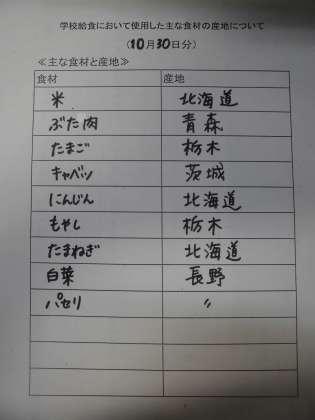 学校給食において使用した主な食材の産地について
(10月30日分)
≪主な食材と産地≫
食材 産地
米 北海道
ぶた肉 青森
たまご 栃木
キャベツ 茨城
にんじん 北海道
もやし 栃木
たまねぎ 北海道
白菜 長野
パセリ 〃